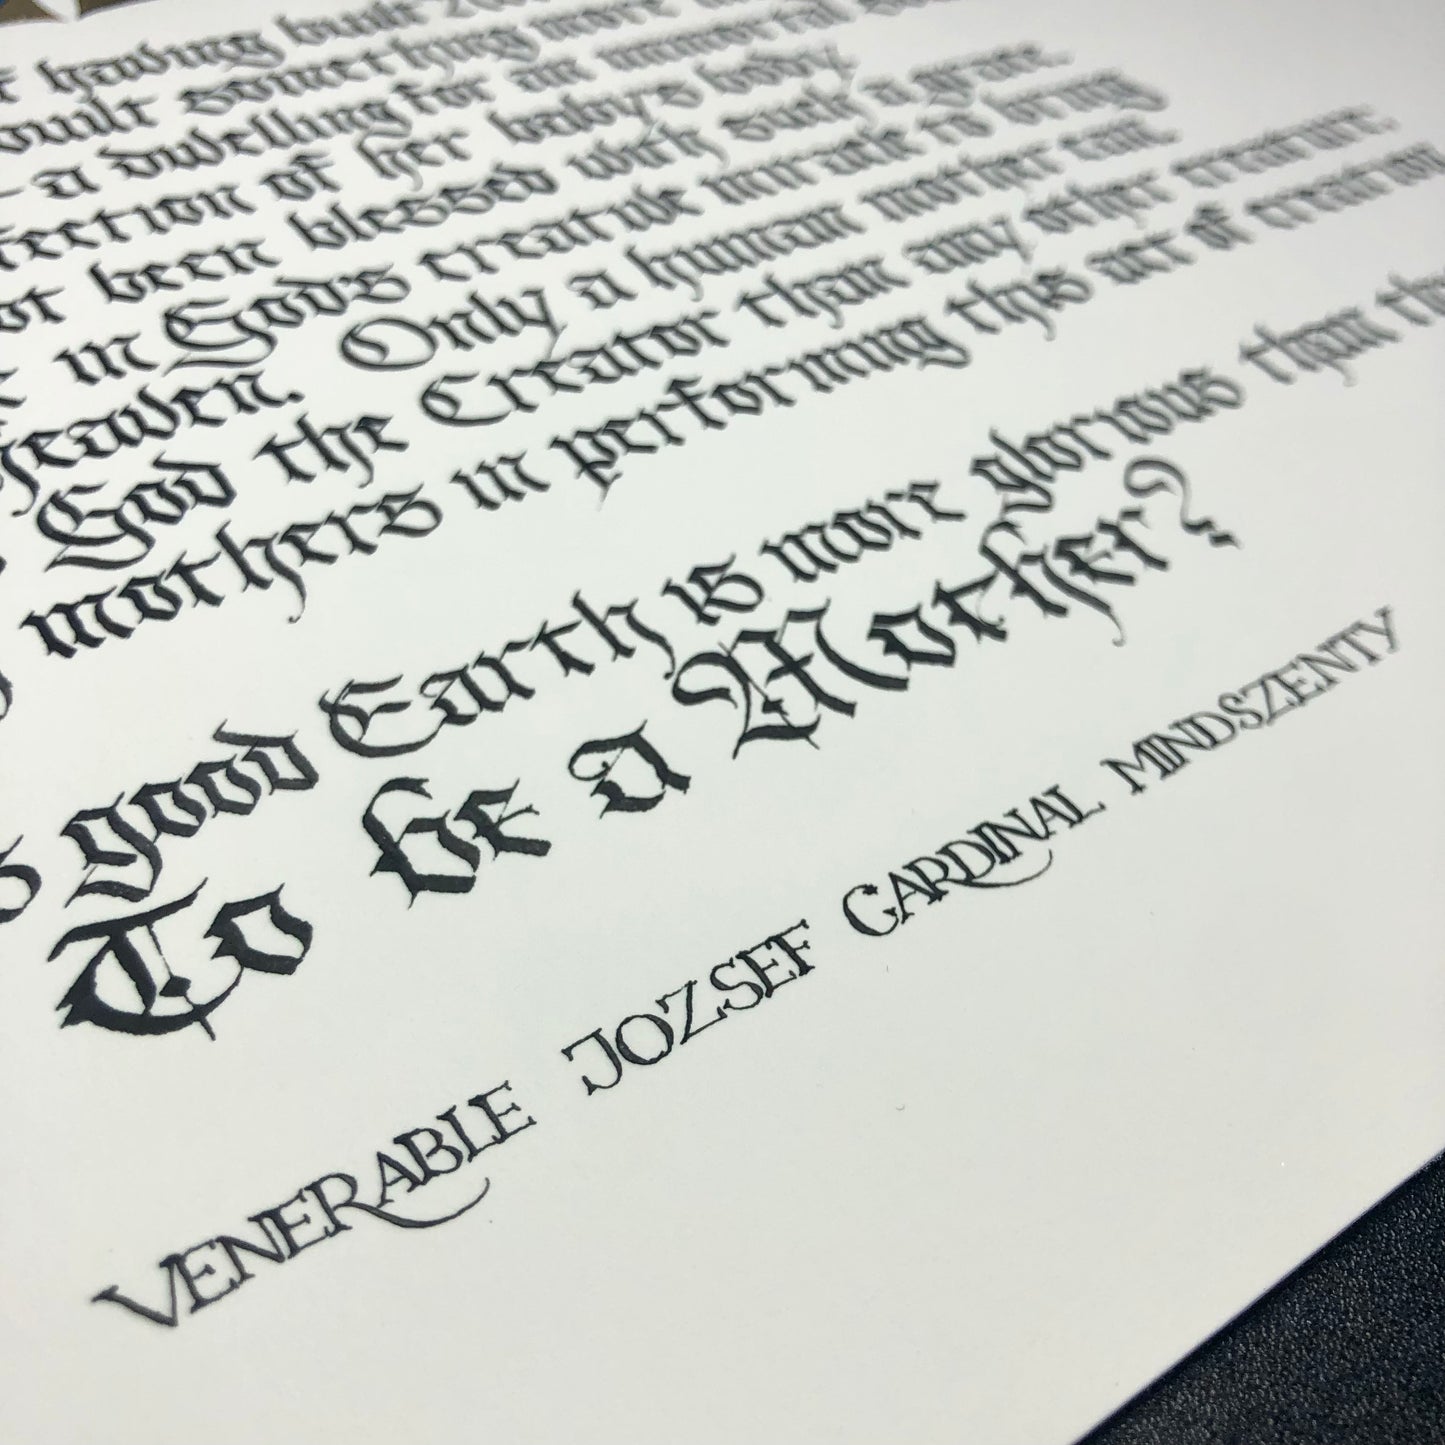 having built
built something more
a dwelling for an immortal
of her baby's body.
not been blessed with such a grace.
in God's creative miracle to bring
Heaven. Only a human mother can.
God the Creator than any other creature.
mothers in performing this act of creation
good Earth is more glorious than
To be a Mother?
VENERABLE JOZSEF CARDINAL MINDSZENTY